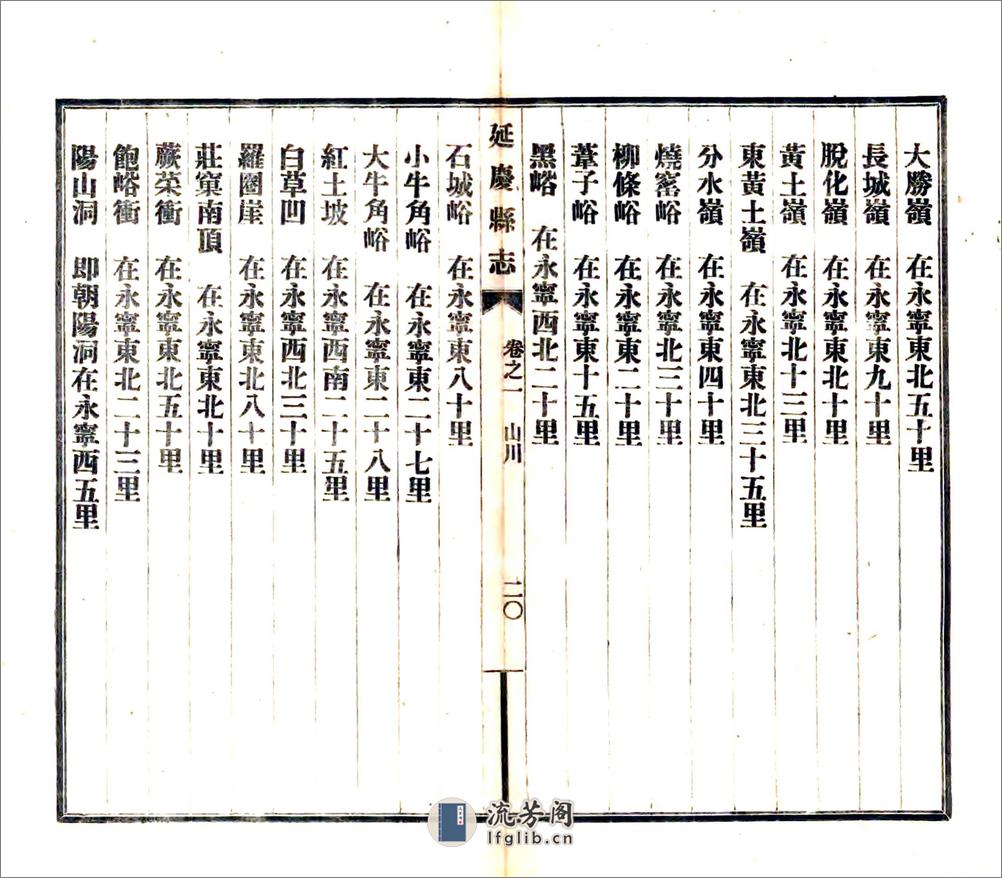 大勝嶺 在永寧東北五十里
長城嶺 在永寧東九十里
脫化嶺 在永寧東北十里
黃土嶺 在永寧北十三里
東黃土嶺 在永寧東北三十五里
分水嶺 在永寧東四十里
燒窰峪 在永寧西北三十里
柳條峪 在永寧東二十里
葦子峪 在永寧東十五里
黑峪 在永寧西北二十里
延慶縣志 卷之一 山川 二〇
石城峪 在永寧東八十里
小牛角峪 在永寧東二十七里
大牛角峪 在永寧東二十八里
紅土坡 在永寧西南二十五里
白草凹 在永寧西北三十里
羅圈崖 在永寧東北八十里
莊窠南頂 在永寧東北十里
蕨菜衝 在永寧東北五十里
鮑峪衝 在永寧東北二十三里
陽山洞 即朝陽洞在永寧西五里
流芳阁
lfglib.cn